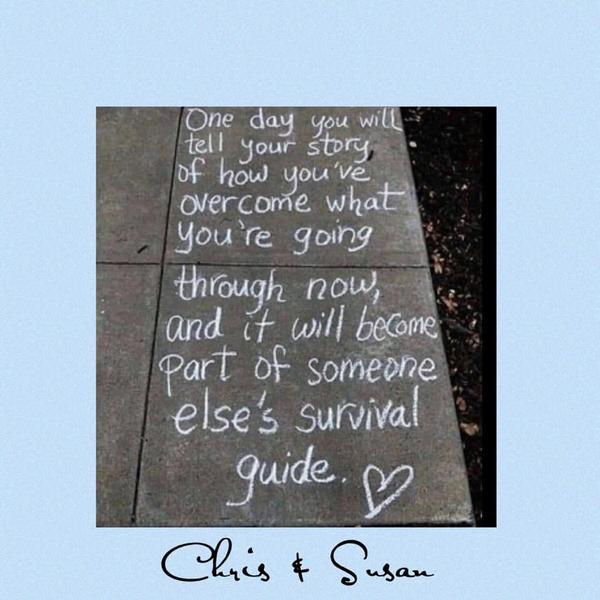 One day you will
tell your story
of how you've
overcome what
you're going
through now,
and it will become
part of someone
else's survival
guide.
Chris & Susan